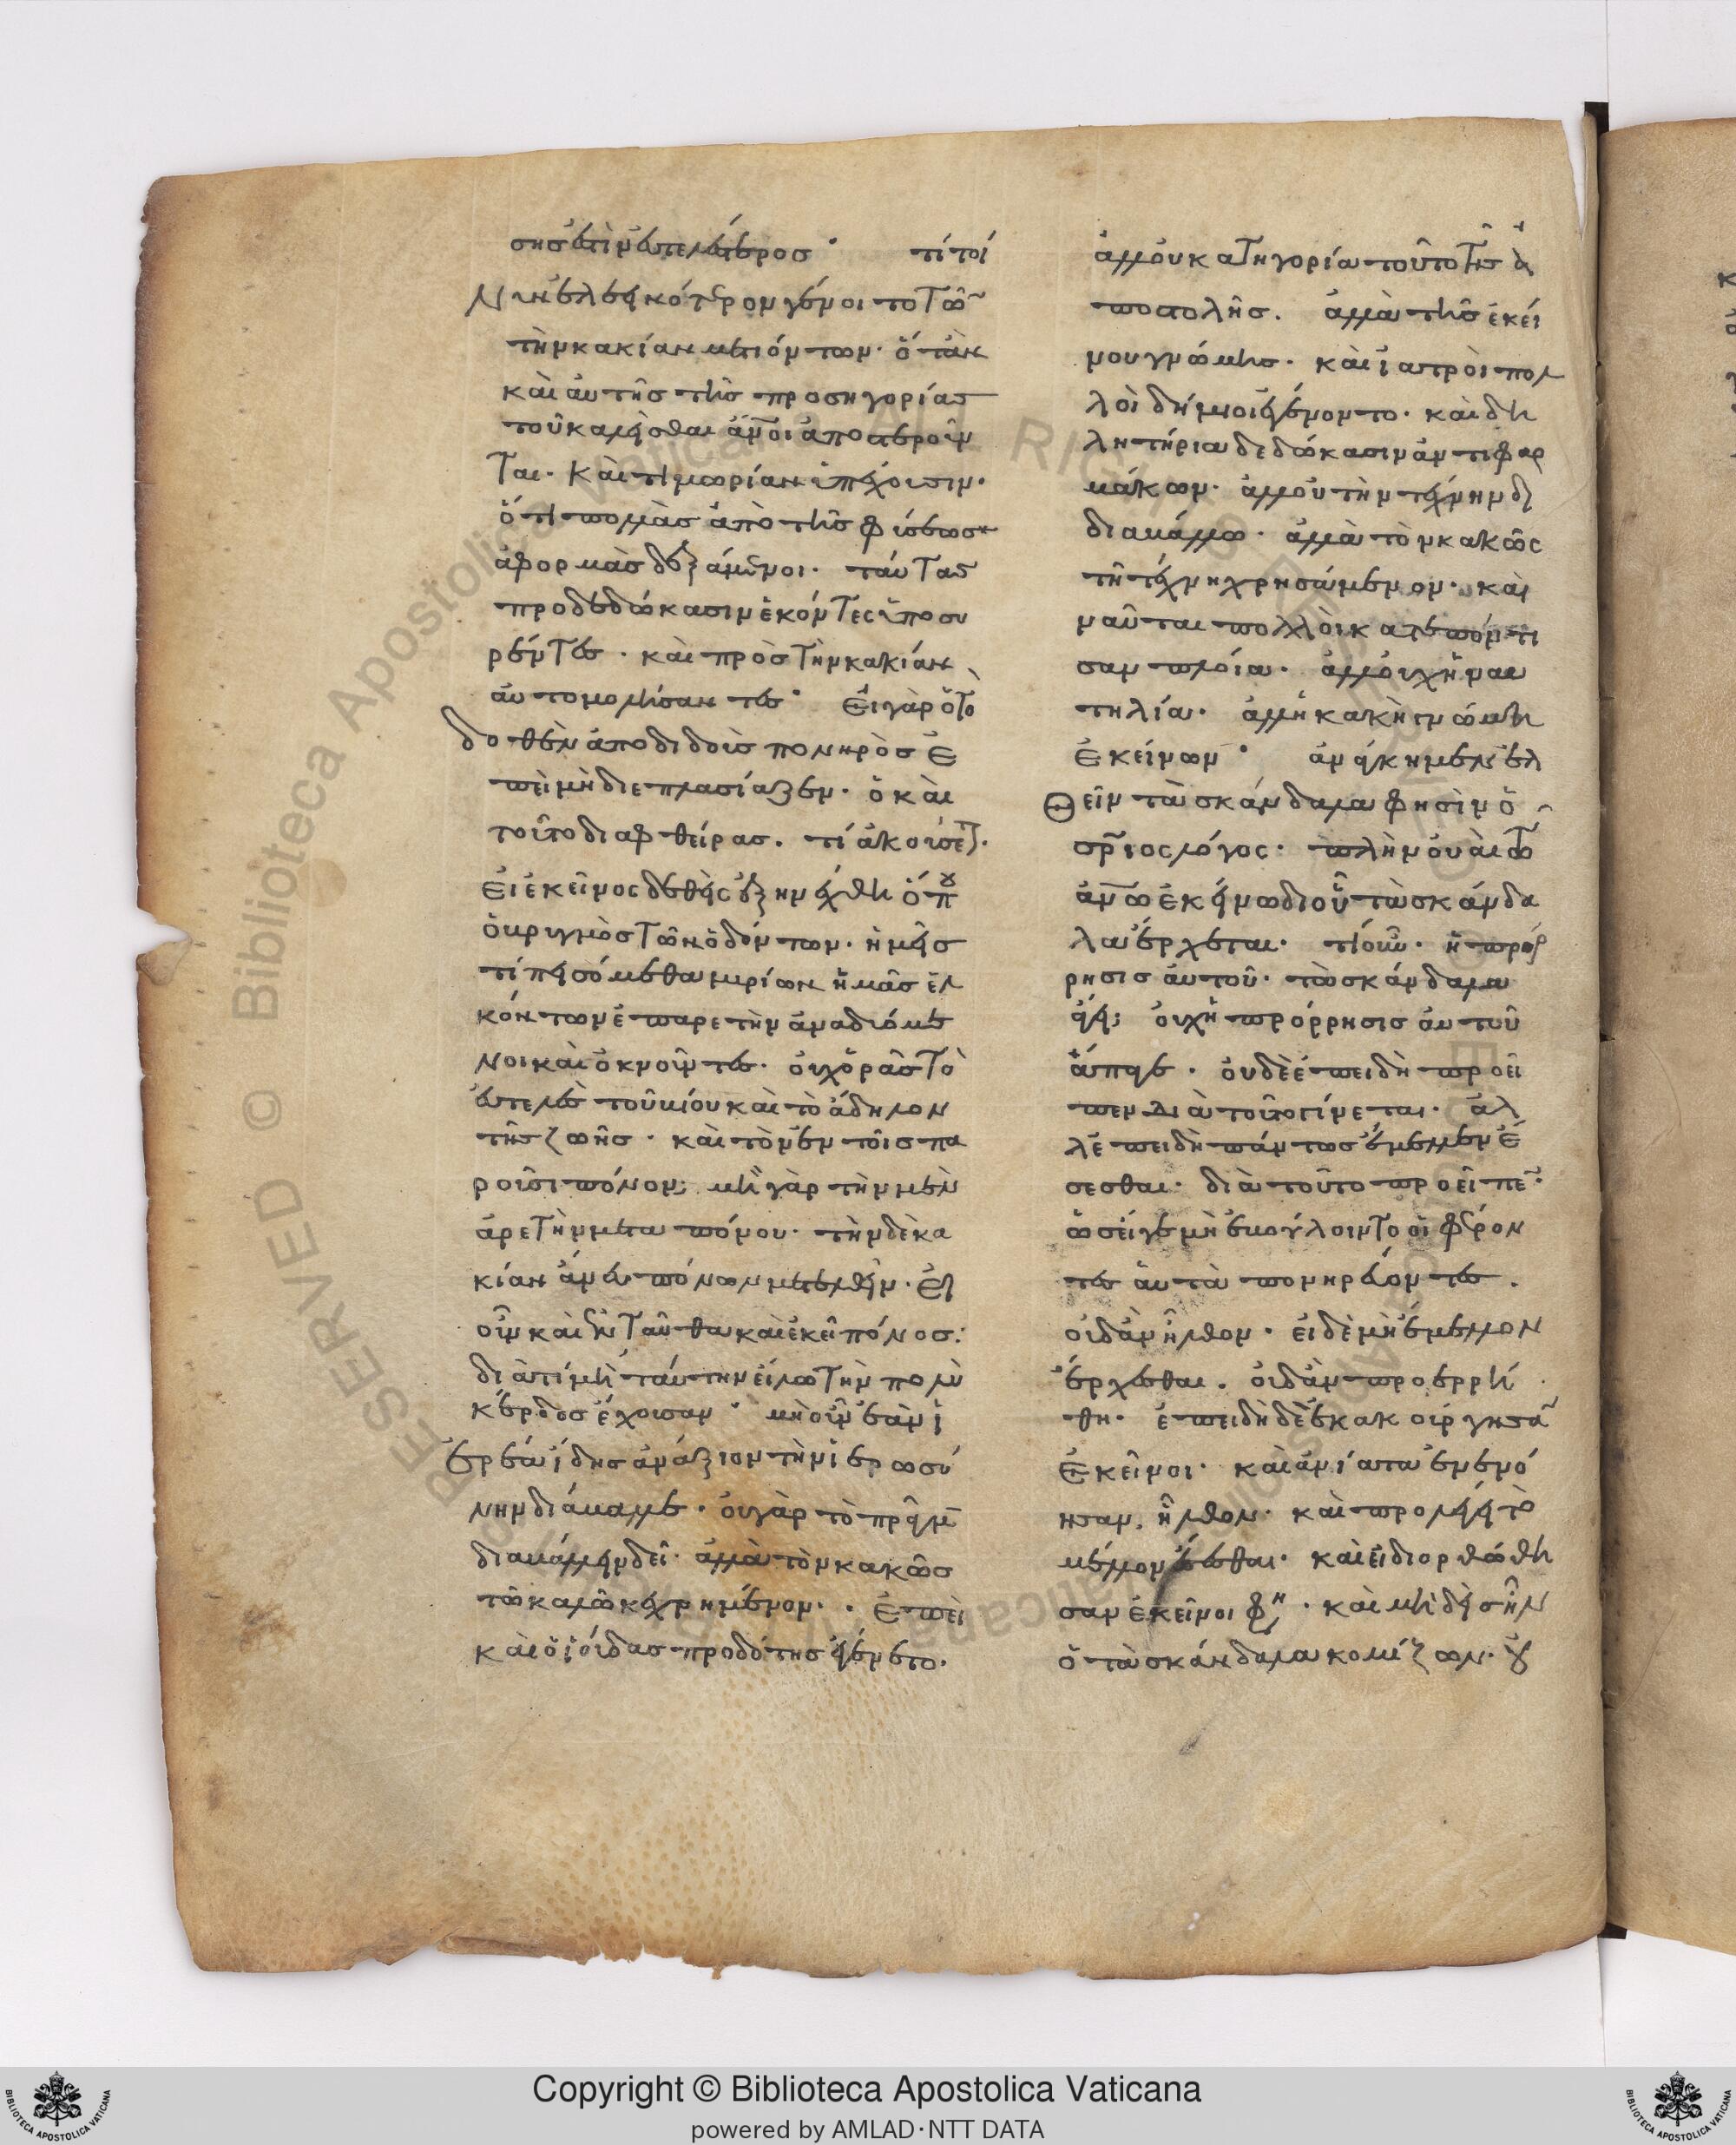 σης ἐστὶν εὐτελέστερος· τί τοί
νυν ἐλεεινότερον γένοιτο τῶν
τὴν κακίαν μετιόντων· ὅταν
καὶ αὐτῆς τῆς προσηγορίας
τοῦ καλεῖσθαι ἄνοι ἀποστεροῦν
ται· καὶ τιμωρίαν ὑπέχουσιν·
ὅτι πολλὰς ἀπὸ τῆς φύσεως
ἀφορμὰς δεξάμενοι· ταύτας
προδεδώκασιν ἑκόντες ὑποσυ
ρέντες· καὶ πρὸς τὴν κακίαν
αὐτομολήσαντες· Εἰ γὰρ ὁ τὸ
δοθὲν ἀποδιδοὺς πονηρὸς ἐ
πεὶ μὴ διεπλασίαζεν· ὁ καὶ
τοῦτο διαφθείρας. τί ἀκούσεται·
εἰ ἐκεῖνος δεθεὶς ἐξηνέχθη ὅπου
ὁ βρυγμὸς τῶν ὀδόντων· ἡμεῖς
τί πεισόμεθα μυρίων ἡμᾶς ἑλ
κόντων ἐπ' ἀρετὴν ἀναδυόμε
νοι καὶ ὀκνοῦντες· οὐχ ὁρᾶς τὸ
εὐτελὲς τοῦ βίου καὶ τὸ ἄδηλον
τῆς ζωῆς· καὶ τὸν ἐν τοῖς πα
ροῦσι πόνον; μὴ γὰρ τὴν μὲν
ἀρετὴν μετὰ πόνου· τὴν δὲ κα
κίαν ἄνευ πόνων μετελθεῖν· εἰ
οὖν καὶ ἐνταῦθα κἀκεῖ πόνος·
διὰ τί μὴ ταύτην εἵλω τὴν πολὺ
κέρδος ἔχουσαν· μὴ οὖν ἐὰν ἱ
ερέα ἴδῃς ἀνάξιον τὴν ἱερωσύ
νην διάβαλλε· οὐ γὰρ τὸ πρᾶγμα
διαβάλλειν δεῖ· ἀλλὰ τὸν κακῶς
τῶ καλῶ κεχρημένον· ἐπεὶ
καὶ ὁ ἰούδας προδότης ἐγένετο·
ἀλλ' οὐ κατηγορία τοῦτο τῆς ἀ
ποστολῆς. ἀλλὰ τῆς ἐκεί
νου γνώμης· καὶ ἰατροὶ πολ
λοὶ δήμιοι ἐγένοντο· καὶ δη
λητήρια δεδώκασιν ἀντὶ φαρ
μάκων· ἀλλ' οὐ τὴν τέχνην δ
διαβάλλω· ἀλλὰ τὸν κακῶς
τῇ τέχνῃ χρησάμενον· καὶ
ναῦται πολλοὶ κατεπόντι
σαν πλοῖα· ἀλλ' οὐχ ἡ ναυ
τιλία· ἀλλ' ἡ κακὴ γνώμη
ἐκείνων· ἀνάγκη μὲν ἐλ
θεῖν τὰ σκάνδαλα φησὶν ὁ
σριος λόγος· πλὴν οὐαὶ τῶ
ἀνω ἐκείνω δι' οὗ τὰ σκάνδα
λα ἔρχεται· τί οὖν· ἡ πρόρ
ρησις αὐτοῦ· τὰ σκάνδαλα
ἄγει; οὐχ ἡ πρόρρησις αὐτοῦ
ἄπαγε· οὐδὲ ἐπειδὴ προεῖ
πεν διὰ τοῦτο γίνεται· ἀλ
λ' ἐπειδὴ πάντως ἔμελλεν ἔ
σεσθαι· διὰ τοῦτο προεῖπεν·
ὡς εἴγε μὴ ἐβούλοντο οἱ φέρον
τες αὐτὰ πονηρεύοντες.
οὐδ' ἂν ἦλθον· εἰ δὲ μὴ ἔμελλον
ἔρχεσθαι. οὐδ' ἂν προερρή
θη· ἐπειδὴ δὲ ἐκακούργησαν
ἐκεῖνοι· καὶ ἀνίατα ἐνενό
ησαν, ἦλθον· καὶ προλέγει τὸ
μέλλον ἔσεσθαι· καὶ εἰ διορθώθη
σαν ἐκεῖνοι φη· καὶ μηδεὶς ἦν
ὁ τὰ σκάνδαλα κομίζων· οὐ
Copyright © Biblioteca Apostolica Vaticana
powered by AMLAD·NTT DATA